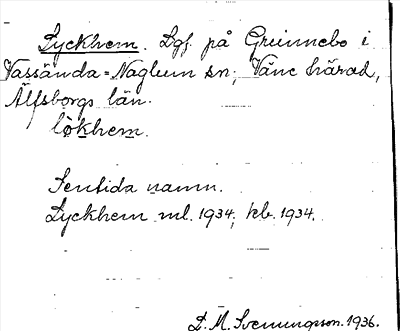 Lyckhem. Lgf. på Grunnebo i
Vassända-Naglum sn; Väne härad,
Älfsborgs län.
lo̊khem.
Sentida namn.
Lyckhem ml. 1934; kb. 1934.
D. M. Svenungsson. 1936.